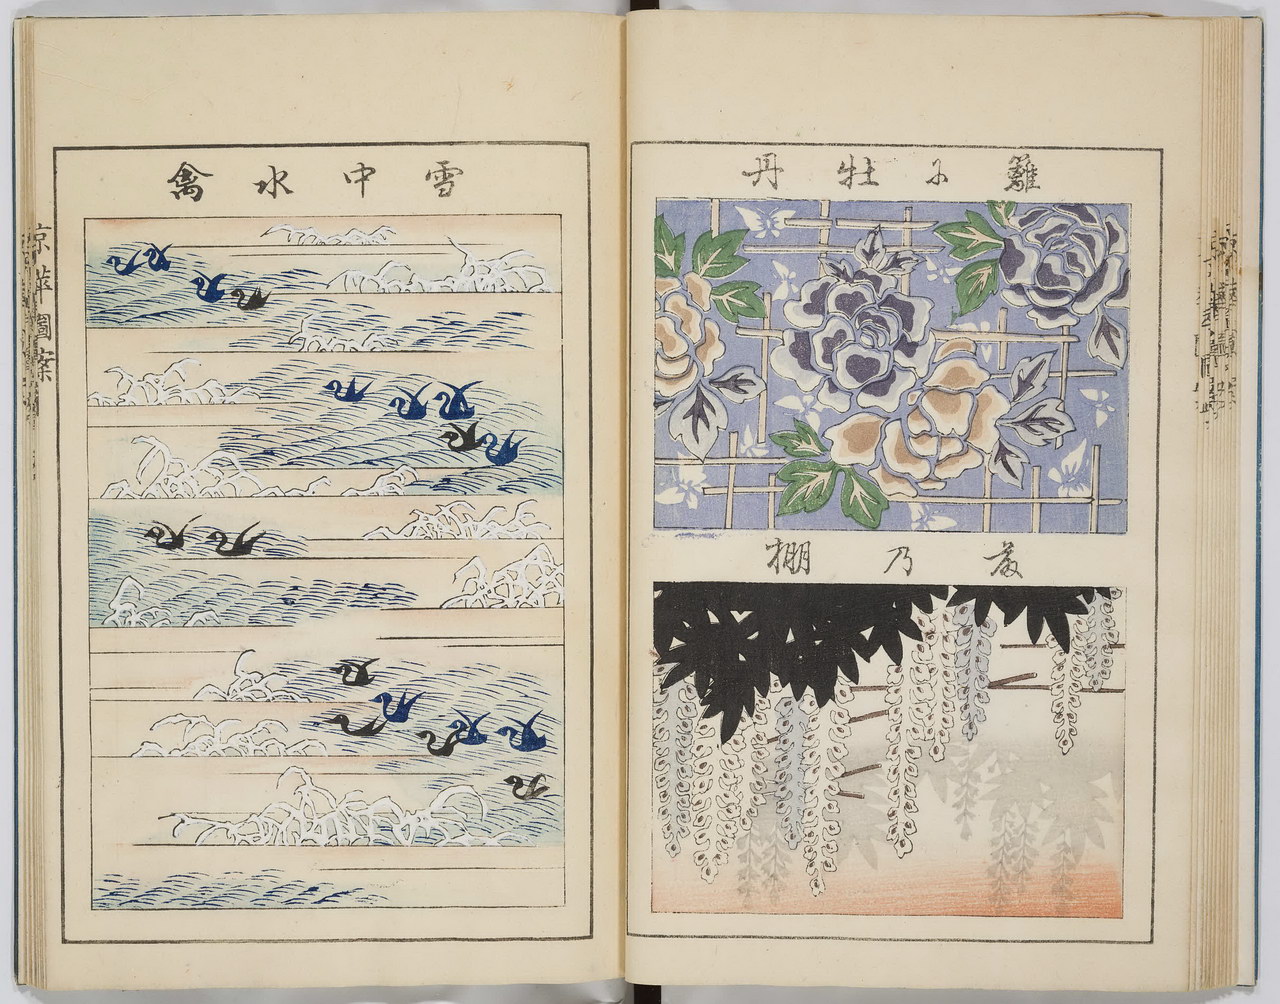 籬尓牡丹
藤乃棚
雪中水禽
京華圖案